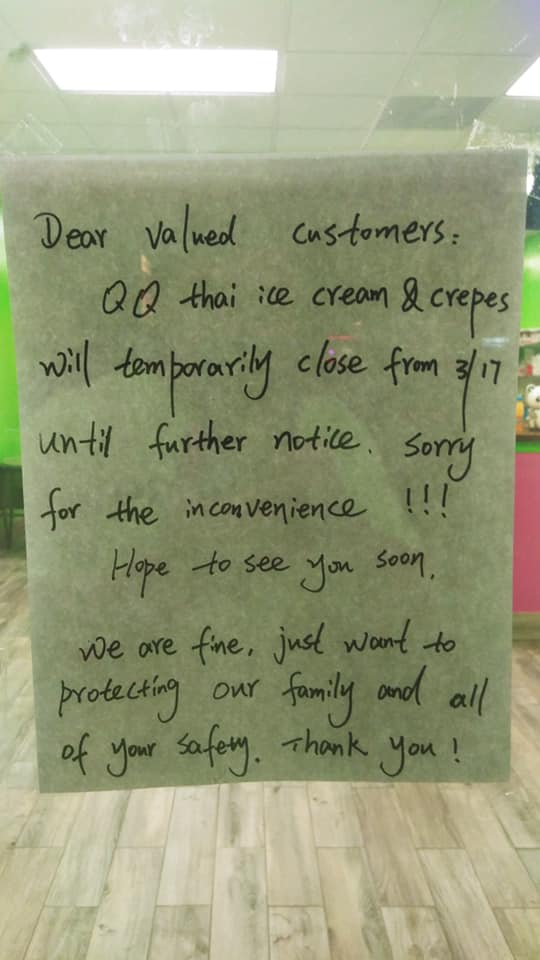 Dear Valued customers:
QQ thai ice cream & crepes
will temporarily close from 3/17
until further notice. sorry
for the inconvenience !!!
Hope to see you soon.
We are fine, just want to
protecting our family and all
of your safety. Thank you !